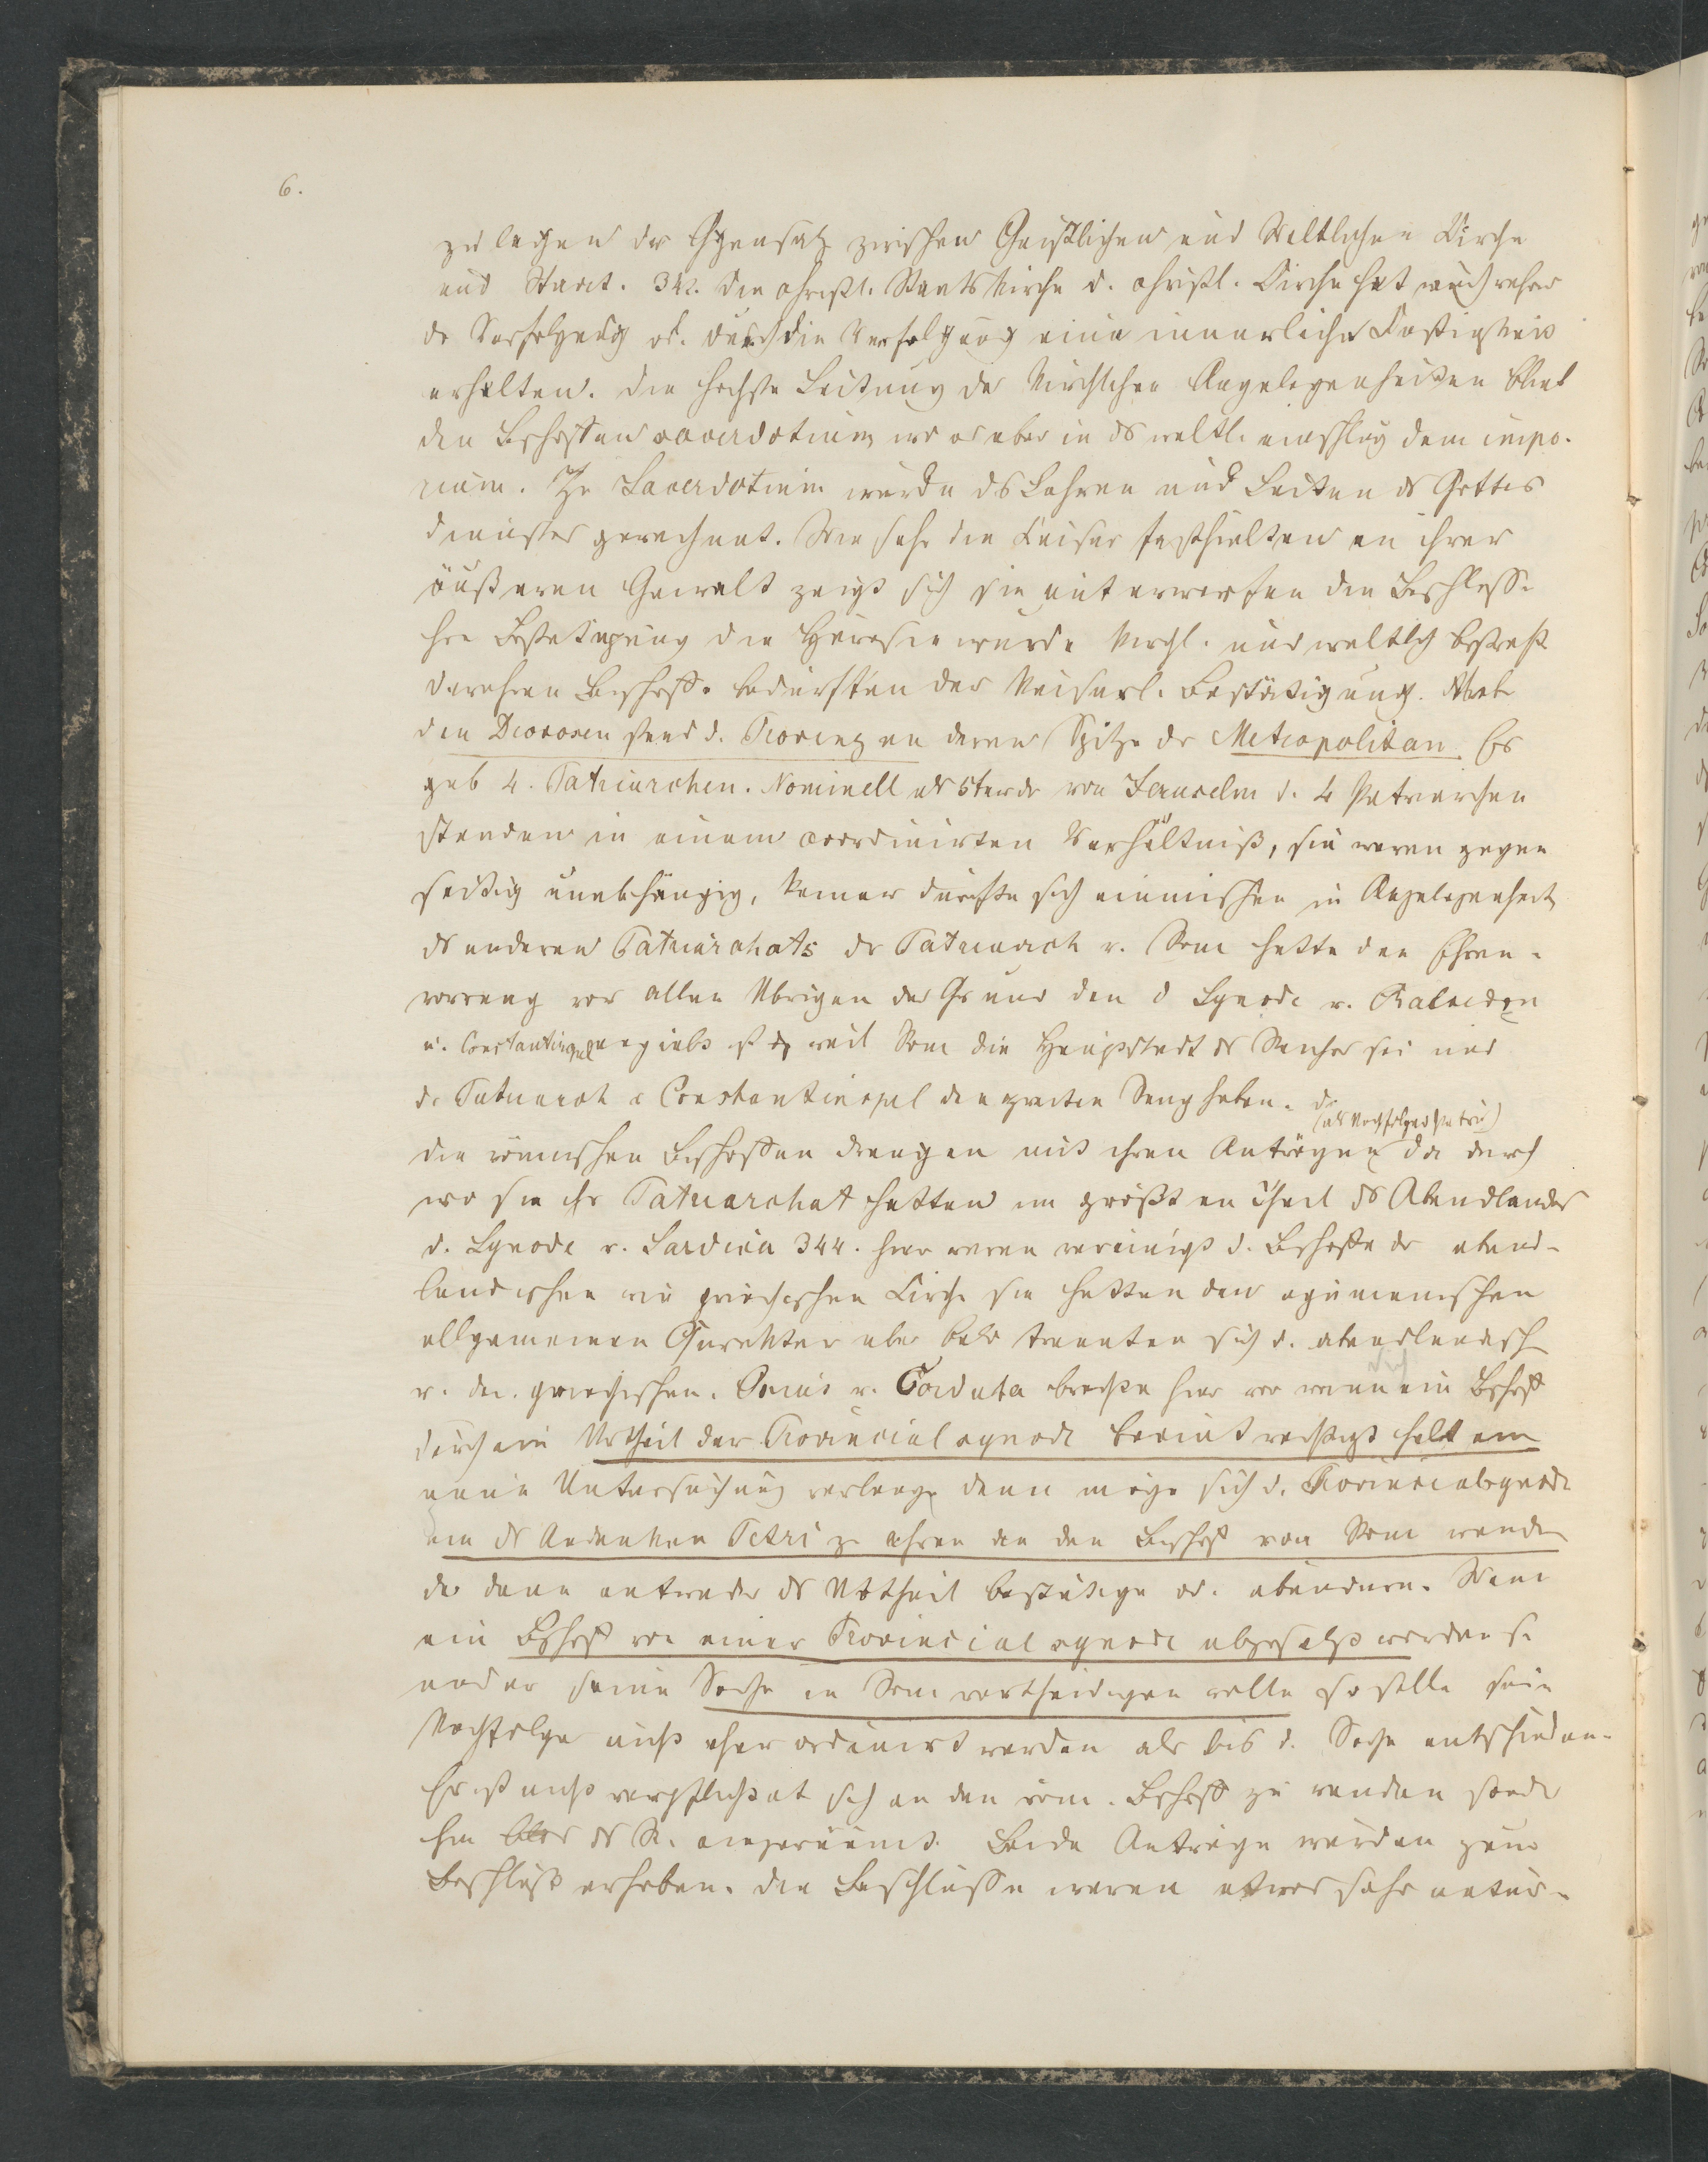 6.
zu legen der Gegensatz zwischen Geistlichen und Weltlichen Kirche
und Staat. 342. Die christl. Staatskirche d. christl. Kirche hat
der Verfolgung od. durch die Verfolgung eine innerliche Festigkeit
erhalten. Die hochste Leitung der kirchlichen Angelegenheiten blieb
den Bischoffen sacerdotium wo es aber in ds weltl. einschlug dem impe-
rium. Zu Sacerdotium wurde ds Lehren und Leiten ds Gottes
dienstes gerechnet. Wie sehr die Kaiser festhielten an ihrer
äußeren Gewalt zeigt sich sie unterwerfen die Beschlosse
ihre Bestatigung die Häresie wurde kirchl. und weltlich bestraft
Bischoffe bedurften der kaiserl. Bestätigung.
den Diocesen stand d. Provinz an deren Spitze der Metropolitan Es
gab 4. Patriarchen. Nominell als 5ter der von Jerusalem d. 4 Patriarchen
standen in einem coordinirten Verhältniß, sie waren gegen
seitig unabhängig, keiner durfte sich einmischen in Angelegenheit
ds anderen Patriarchats der Patriarch v. Rom hatte den Ehren-
vorrang vor allen Ubrigen der Grund den d Synode v. Chalcedon
u. Constantinopel angiebt ist weil Rom die Hauptstadt ds Reiches sei und
der Patriarch v Constantinopel den zweiten Rang haben. d.
(als Nachfolger Petri)
die römischen Bischoffen drangen mit ihren Anträgen da durch
wo sie ihr Patriarchat hatten im größten Theil ds Abendlandes
d. Synode v. Sardica 344. hier waren vereinigt d. Bischoffe der abend-
landischen wie griechischen Kirche sie hatten den ogumenischen
allgemeinen Charakter aber bald trennten sich d. abendlandisch
v. den griechischen. Osius v. Corduba brachte hier vor wenn ein Bischoff
durch ein Urtheil der Provincialsynode beeintrachtigt
neue Untersuchung verlange dann möge sich d. Provincialsynode
um ds Andenken Petri zu ehren an den Bischoff von Rom wenden
der dann entweder ds Urtheil bestätige od. abandere. Wenn
ein Bischoff von einer Provincialsynode abgesetzt worden sei
und er seine Sache in Rom vertheidigen wolle so solle sein
Nachfolger nicht eher ordinirt werden als bis d. Sache entschieden.
Er ist nicht verpflichtet sich an den röm. Bischoff zu wenden
ihm blos ds R. eingeräumt. Beide Antrage wurden zum
Beschluß erhoben. Die Beschlusse waren etwas sehr natur-